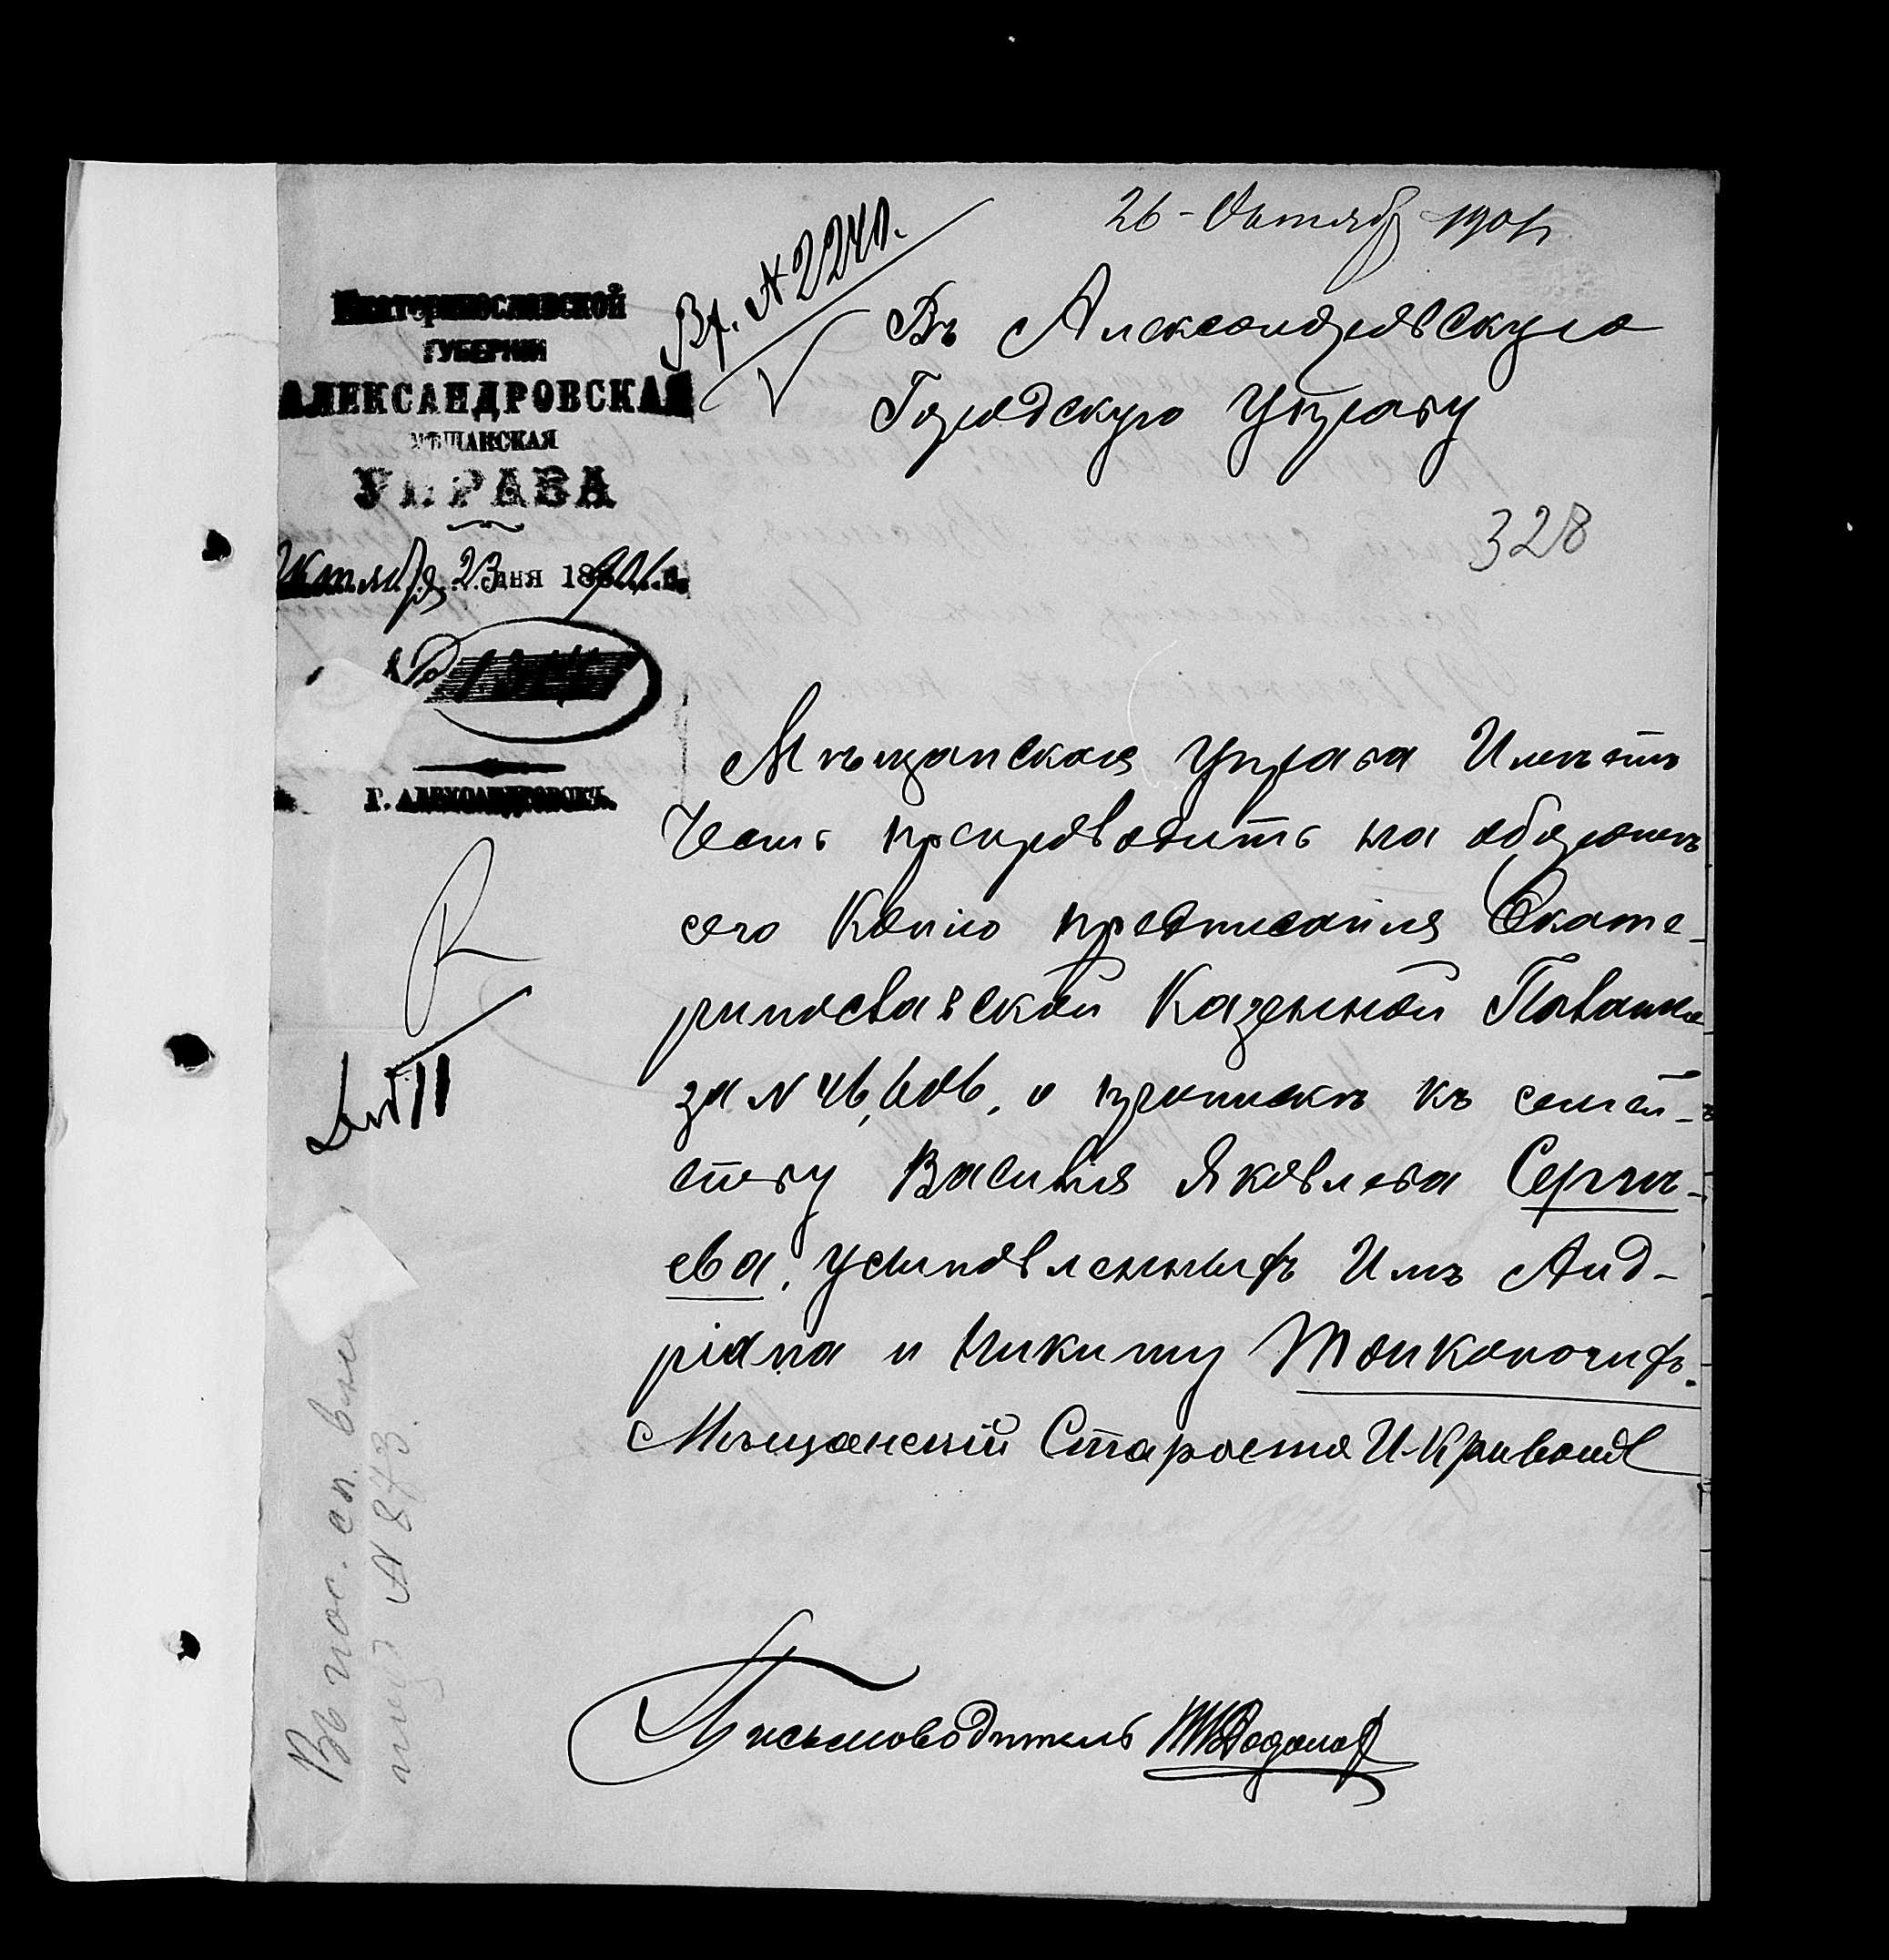 26 - Октябр 1901
Вх. № 2240.
Екатеринославской
ГУБЕРНІИ
АЛЕКСАНДРОВСКАЯ
МѢЩАНСКАЯ
УПРАВА
Октября 23 дня 1901 г.
№
Г. АЛЕКСАНДРОВСКЪ.
Въ Александровскую
Городскую Управу
328
Мѣщанская Управа Имѣетъ
Честь препроводить на оборотѣ
сего Копію предписанія Екате-
ринославской Казенной Палаты
за № 46,606, о припискѣ къ семей-
ству Василія Яковлева Сергѣ-
ева, усыновленныхъ Имъ Анд-
ріяна и Никиту Тонконогихъ.
Мѣщанскій Староста И. Кривош
Письмоводитель
Въ пос. сп. вкл
под № 873.